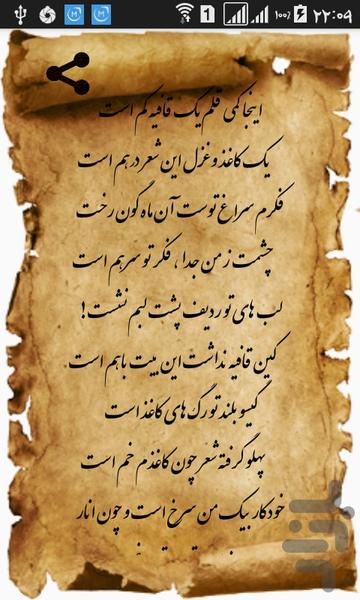 ۱۰۰% ۲۲:۰۹
اینجا کمی قلم یک قافیه کم است
یک کاغذ و غزل این شعر درهم است
فکرم سراغ توست آن ماه گون رخت
چشمت ز من جدا ، فکر تو سرهم است
لب های تو ردیف پشت لبم نشست!
کین قافیه نداشت این بیت باهم است
گیسو بلند تو رگ های کاغذ است
پهلو گرفته شعر چون کاغذم خم است
خودکار بیک من سرخ است و چون انار
بازار